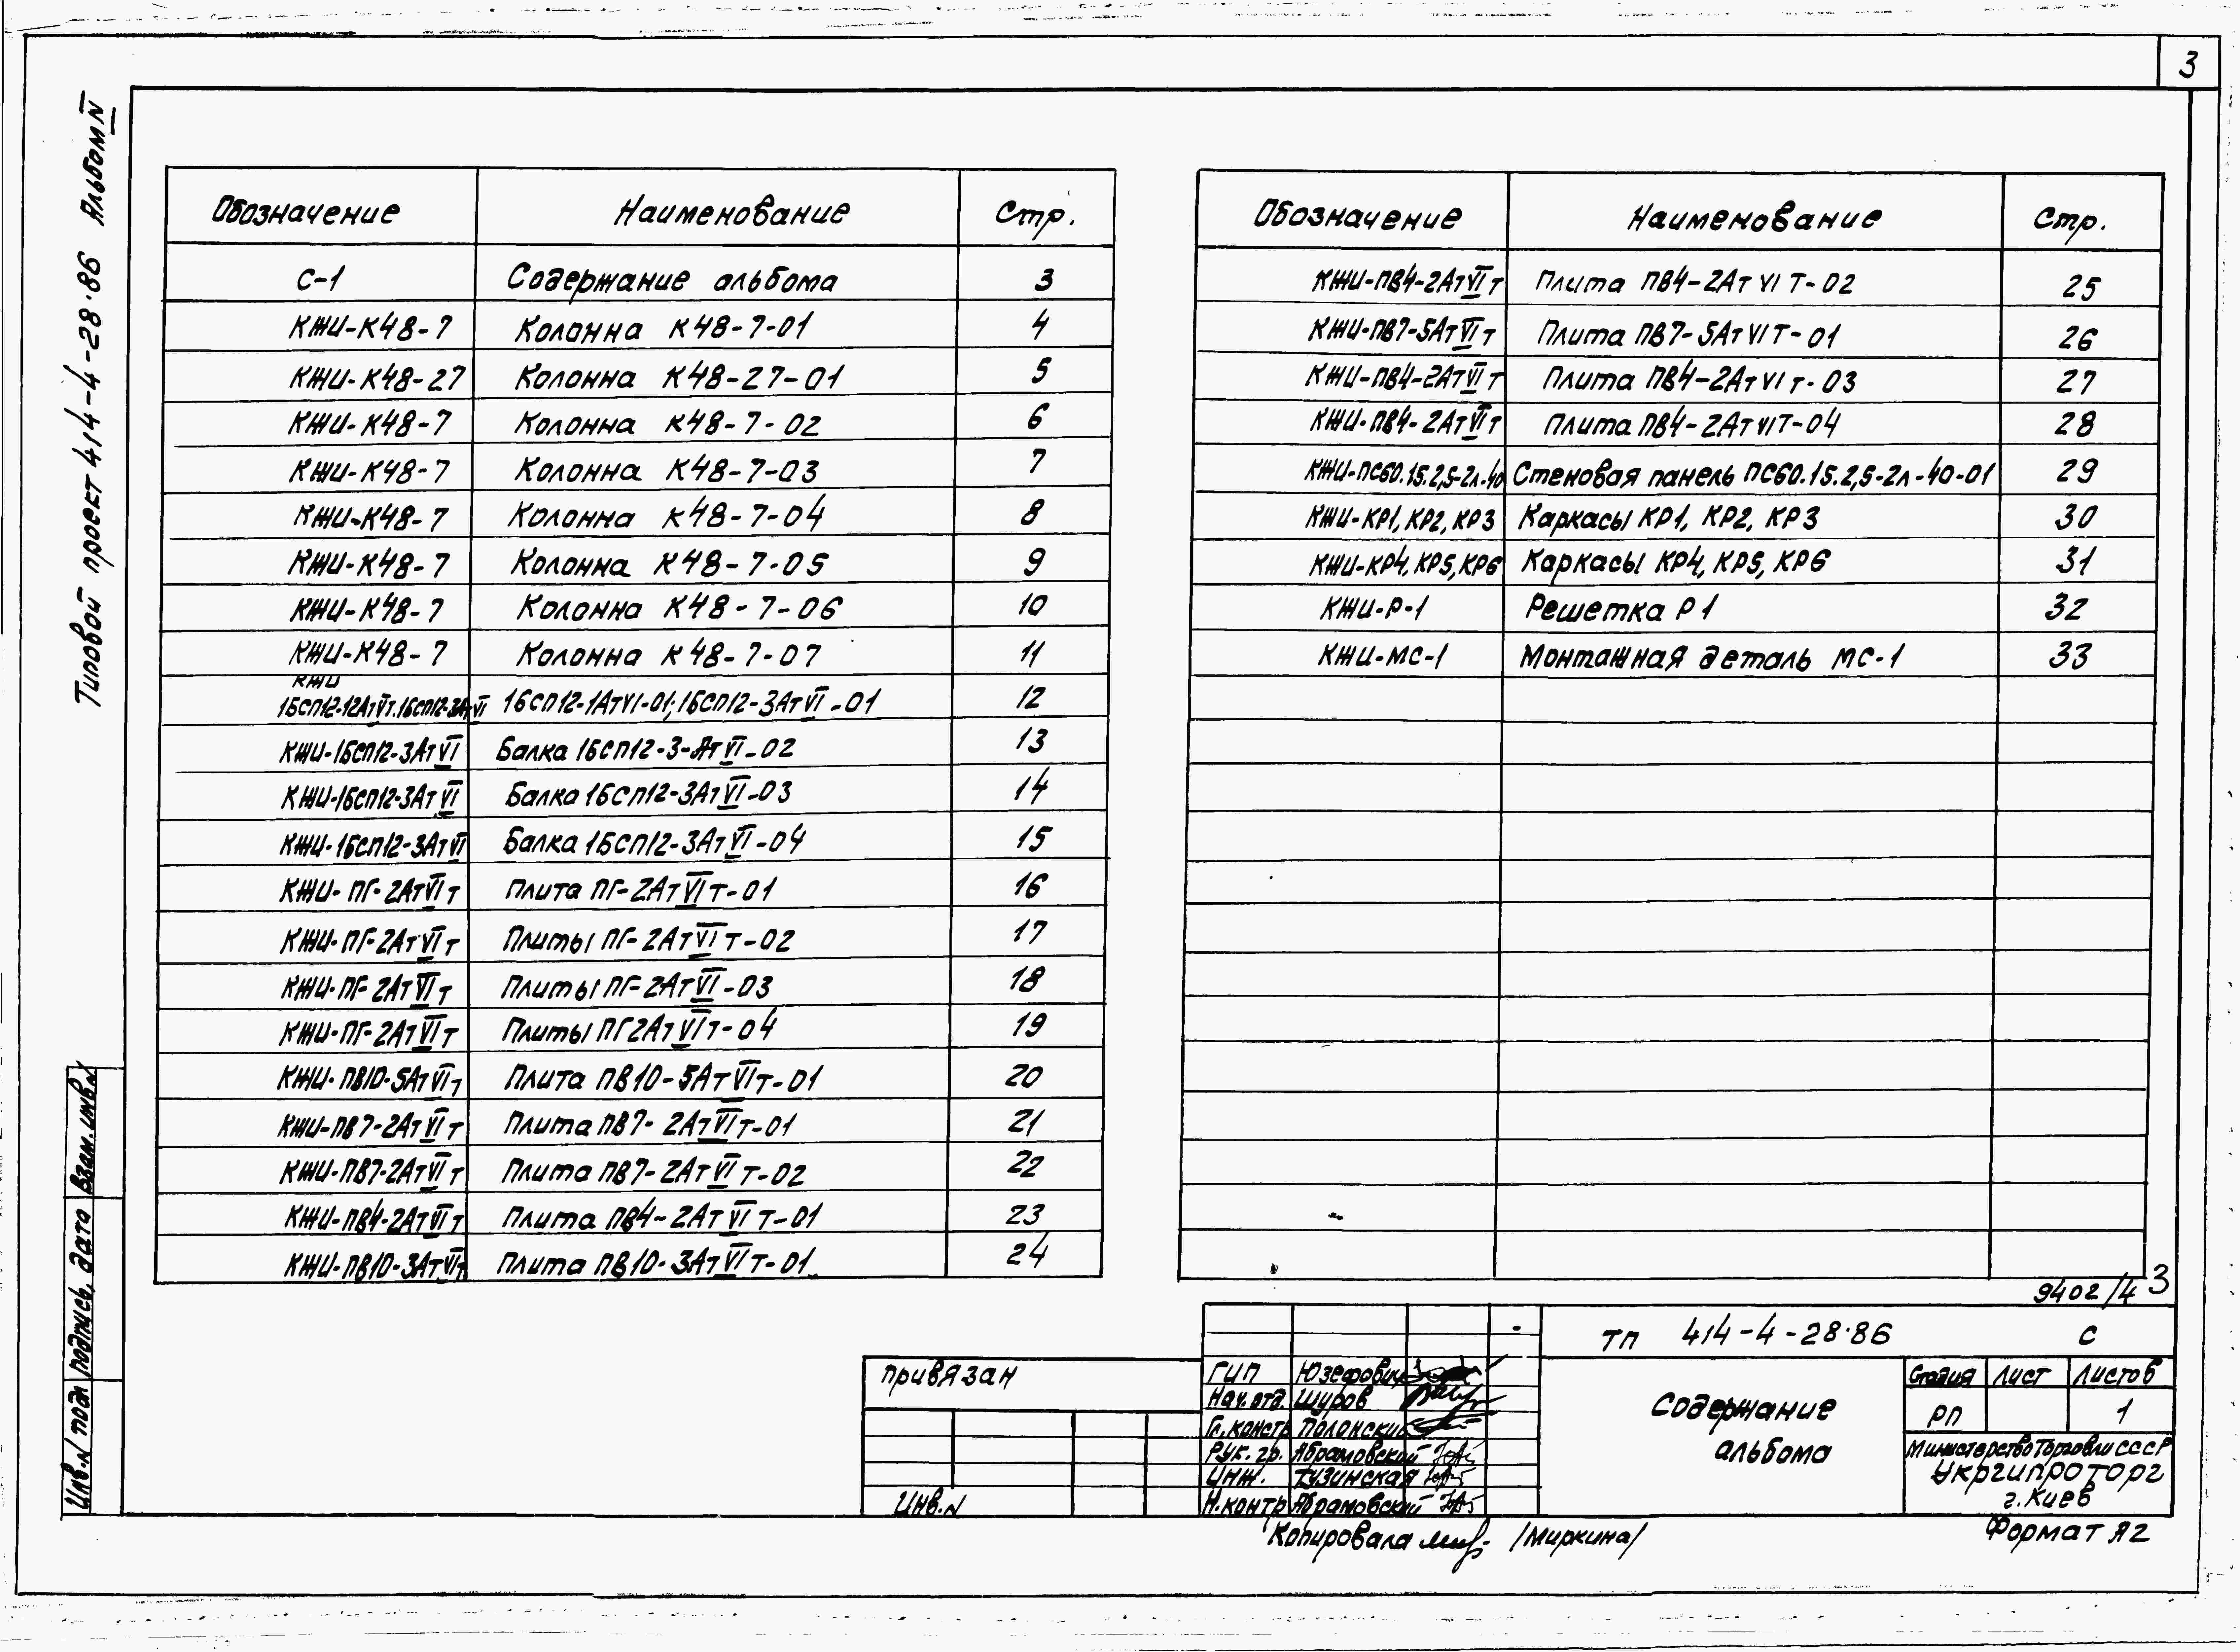 3
Типовой проект 414-4-28·86 Альбом IV
Обозначение Наименование Стр.
С-1 Содержание альбома 3
КЖИ-К48-7 Колонна К48-7-01 4
КЖИ-К48-27 Колонна К48-27-01 5
КЖИ-К48-7 Колонна К48-7-02 6
КЖИ-К48-7 Колонна К48-7-03 7
КЖИ-К48-7 Колонна К48-7-04 8
КЖИ-К48-7 Колонна К48-7-05 9
КЖИ-К48-7 Колонна К48-7-06 10
КЖИ-К48-7 Колонна К48-7-07 11
КЖИ
1БСП12-12АтVт.1БСП12-3АтVI 1БСП12-1АтVI-01; 1БСП12-3АтVI-01 12
КЖИ-1БСП12-3АтVI Балка 1БСП12-3-АтVI-02 13
КЖИ-1БСП12-3АтVI Балка 1БСП12-3АтVI-03 14
КЖИ-1БСП12-3АтVI Балка 1БСП12-3АтVI-04 15
КЖИ-ПГ-2АтVIт Плита ПГ-2АтVIт-01 16
КЖИ-ПГ-2АтVIт Плиты ПГ-2АтVIт-02 17
КЖИ-ПГ-2АтVIт Плиты ПГ-2АтVI-03 18
КЖИ-ПГ-2АтVIт Плиты ПГ2АтVIт-04 19
КЖИ-ПВ10-5АтVIт Плита ПВ10-5АтVIт-01 20
КЖИ-ПВ7-2АтVIт Плита ПВ7-2АтVIт-01 21
КЖИ-ПВ7-2АтVIт Плита ПВ7-2АтVIт-02 22
КЖИ-ПВ4-2АтVIт Плита ПВ4-2АтVIт-01 23
КЖИ-ПВ10-3АтVIт Плита ПВ10-3АтVIт-01 24
Обозначение Наименование Стр.
КЖИ-ПВ4-2АтVIт Плита ПВ4-2АтVIТ-02 25
КЖИ-ПВ7-5АтVIт Плита ПВ7-5АтVIТ-01 26
КЖИ-ПВ4-2АтVIт Плита ПВ4-2АтVIт-03 27
КЖИ-ПВ4-2АтVIт Плита ПВ4-2АтVIТ-04 28
КЖИ-ПС60.15.2,5-2л-40 Стеновая панель ПС60.15.2,5-2л-40-01 29
КЖИ-КР1, КР2, КР3 Каркасы КР1, КР2, КР3 30
КЖИ-КР4, КР5, КР6 Каркасы КР4, КР5, КР6 31
КЖИ-Р-1 Решетка Р1 32
КЖИ-МС-1 Монтажная деталь МС-1 33
9402/4 3
ТП 414-4-28·86 С
Содержание
альбома
Стадия Лист Листов
РП 1
Министерство Торговли СССР
Укргипроторг
г. Киев
Привязан
Инв.N
ГИП Юзефович
Нач.отд. Шуров
Гл.констр Полонский
Рук.гр. Абрамовский
Инж. Тузинская
Н.контр Абрамовский
Копировала /Миркина/
Формат А2
Инв.N подл Подпись, дата Взам.инв.N